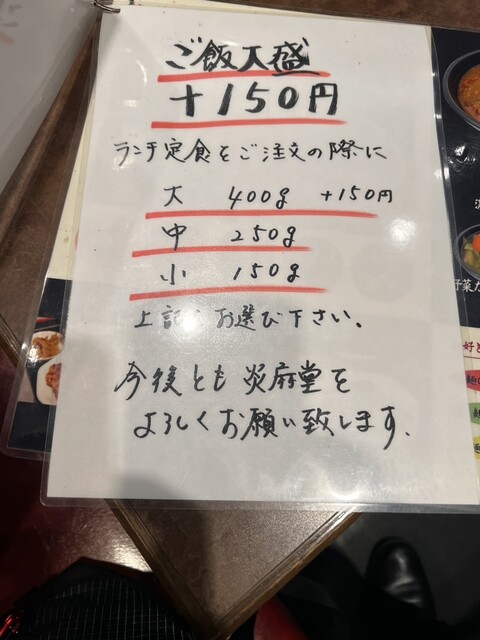 ご飯大盛
+150円
ランチ定食をご注文の際に
大 400g +150円
中 250g
小 150g
上記 お選び下さい。
今後とも 炎麻堂を
よろしくお願い致します.
野菜
好き